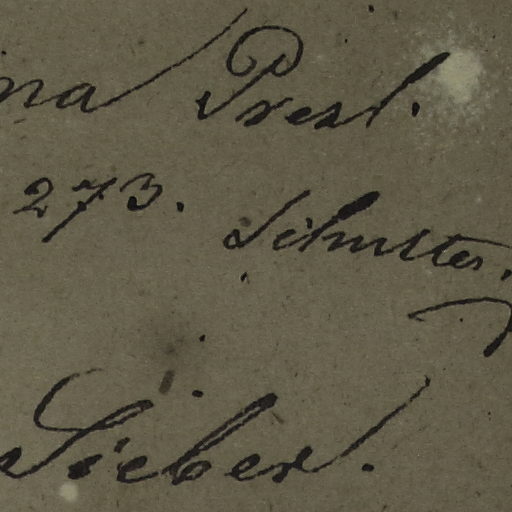 na Presl.
273. Schuster.
Sieber.